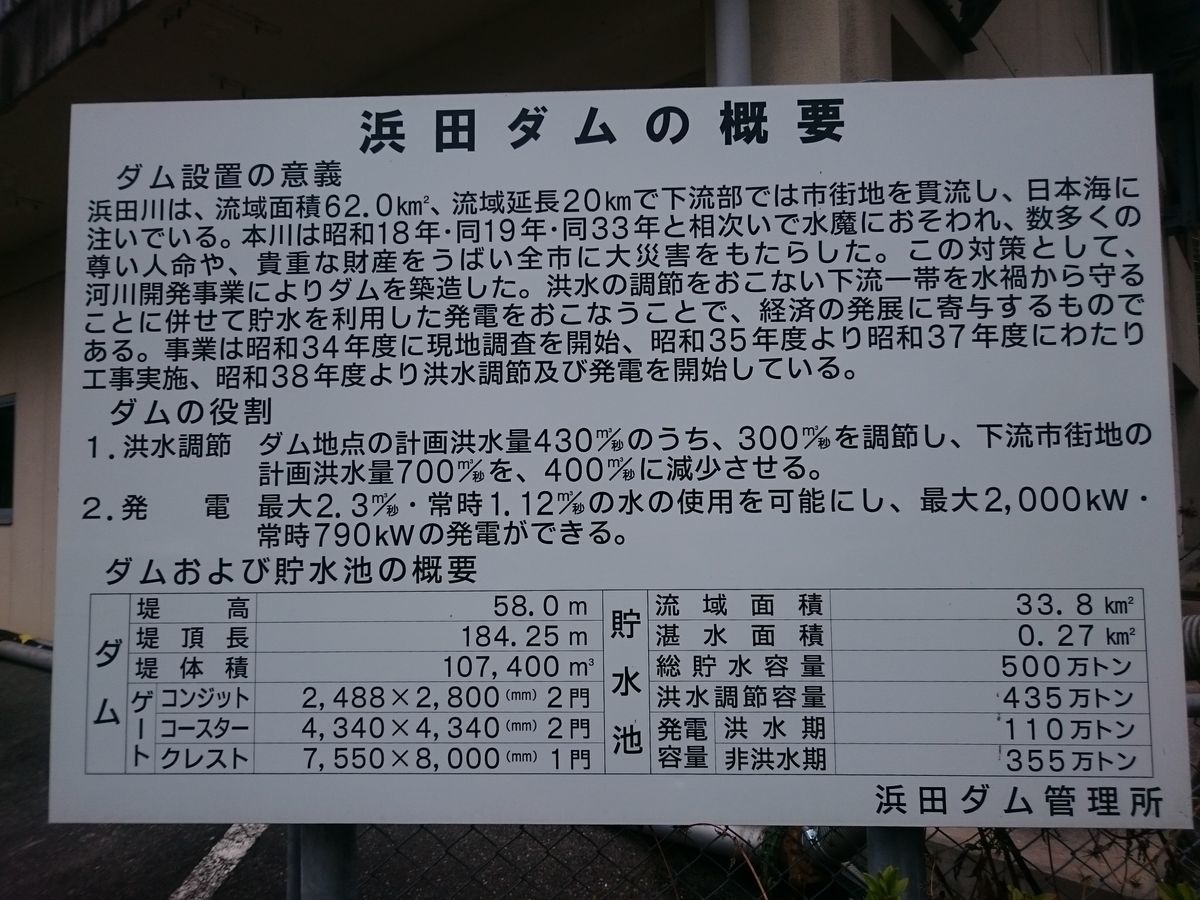 浜田ダムの概要
ダム設置の意義
浜田川は、流域面積62.0km²、流域延長20kmで下流部では市街地を貫流し、日本海に
注いでいる。本川は昭和18年・同19年・同33年と相次いで水魔におそわれ、数多くの
尊い人命や、貴重な財産をうばい全市に大災害をもたらした。この対策として、
河川開発事業によりダムを築造した。洪水の調節をおこない下流一帯を水禍から守る
ことに併せて貯水を利用した発電をおこなうことで、経済の発展に寄与するもので
ある。事業は昭和34年度に現地調査を開始、昭和35年度より昭和37年度にわたり
工事実施、昭和38年度より洪水調節及び発電を開始している。
ダムの役割
1.洪水調節 ダム地点の計画洪水量430m³/秒のうち、300m³/秒を調節し、下流市街地の
計画洪水量700m³/秒を、400m³/秒に減少させる。
2.発電 最大2.3m³/秒・常時1.12m³/秒の水の使用を可能にし、最大2,000kW・
常時790kWの発電ができる。
ダムおよび貯水池の概要
ダム
堤高 58.0m
堤頂長 184.25m
堤体積 107,400m³
ゲート
コンジット 2,488×2,800(mm)2門
コースター 4,340×4,340(mm)2門
クレスト 7,550×8,000(mm)1門
貯水池
流域面積 33.8km²
湛水面積 0.27km²
総貯水容量 500万トン
洪水調節容量 435万トン
発電容量
洪水期 110万トン
非洪水期 355万トン
浜田ダム管理所